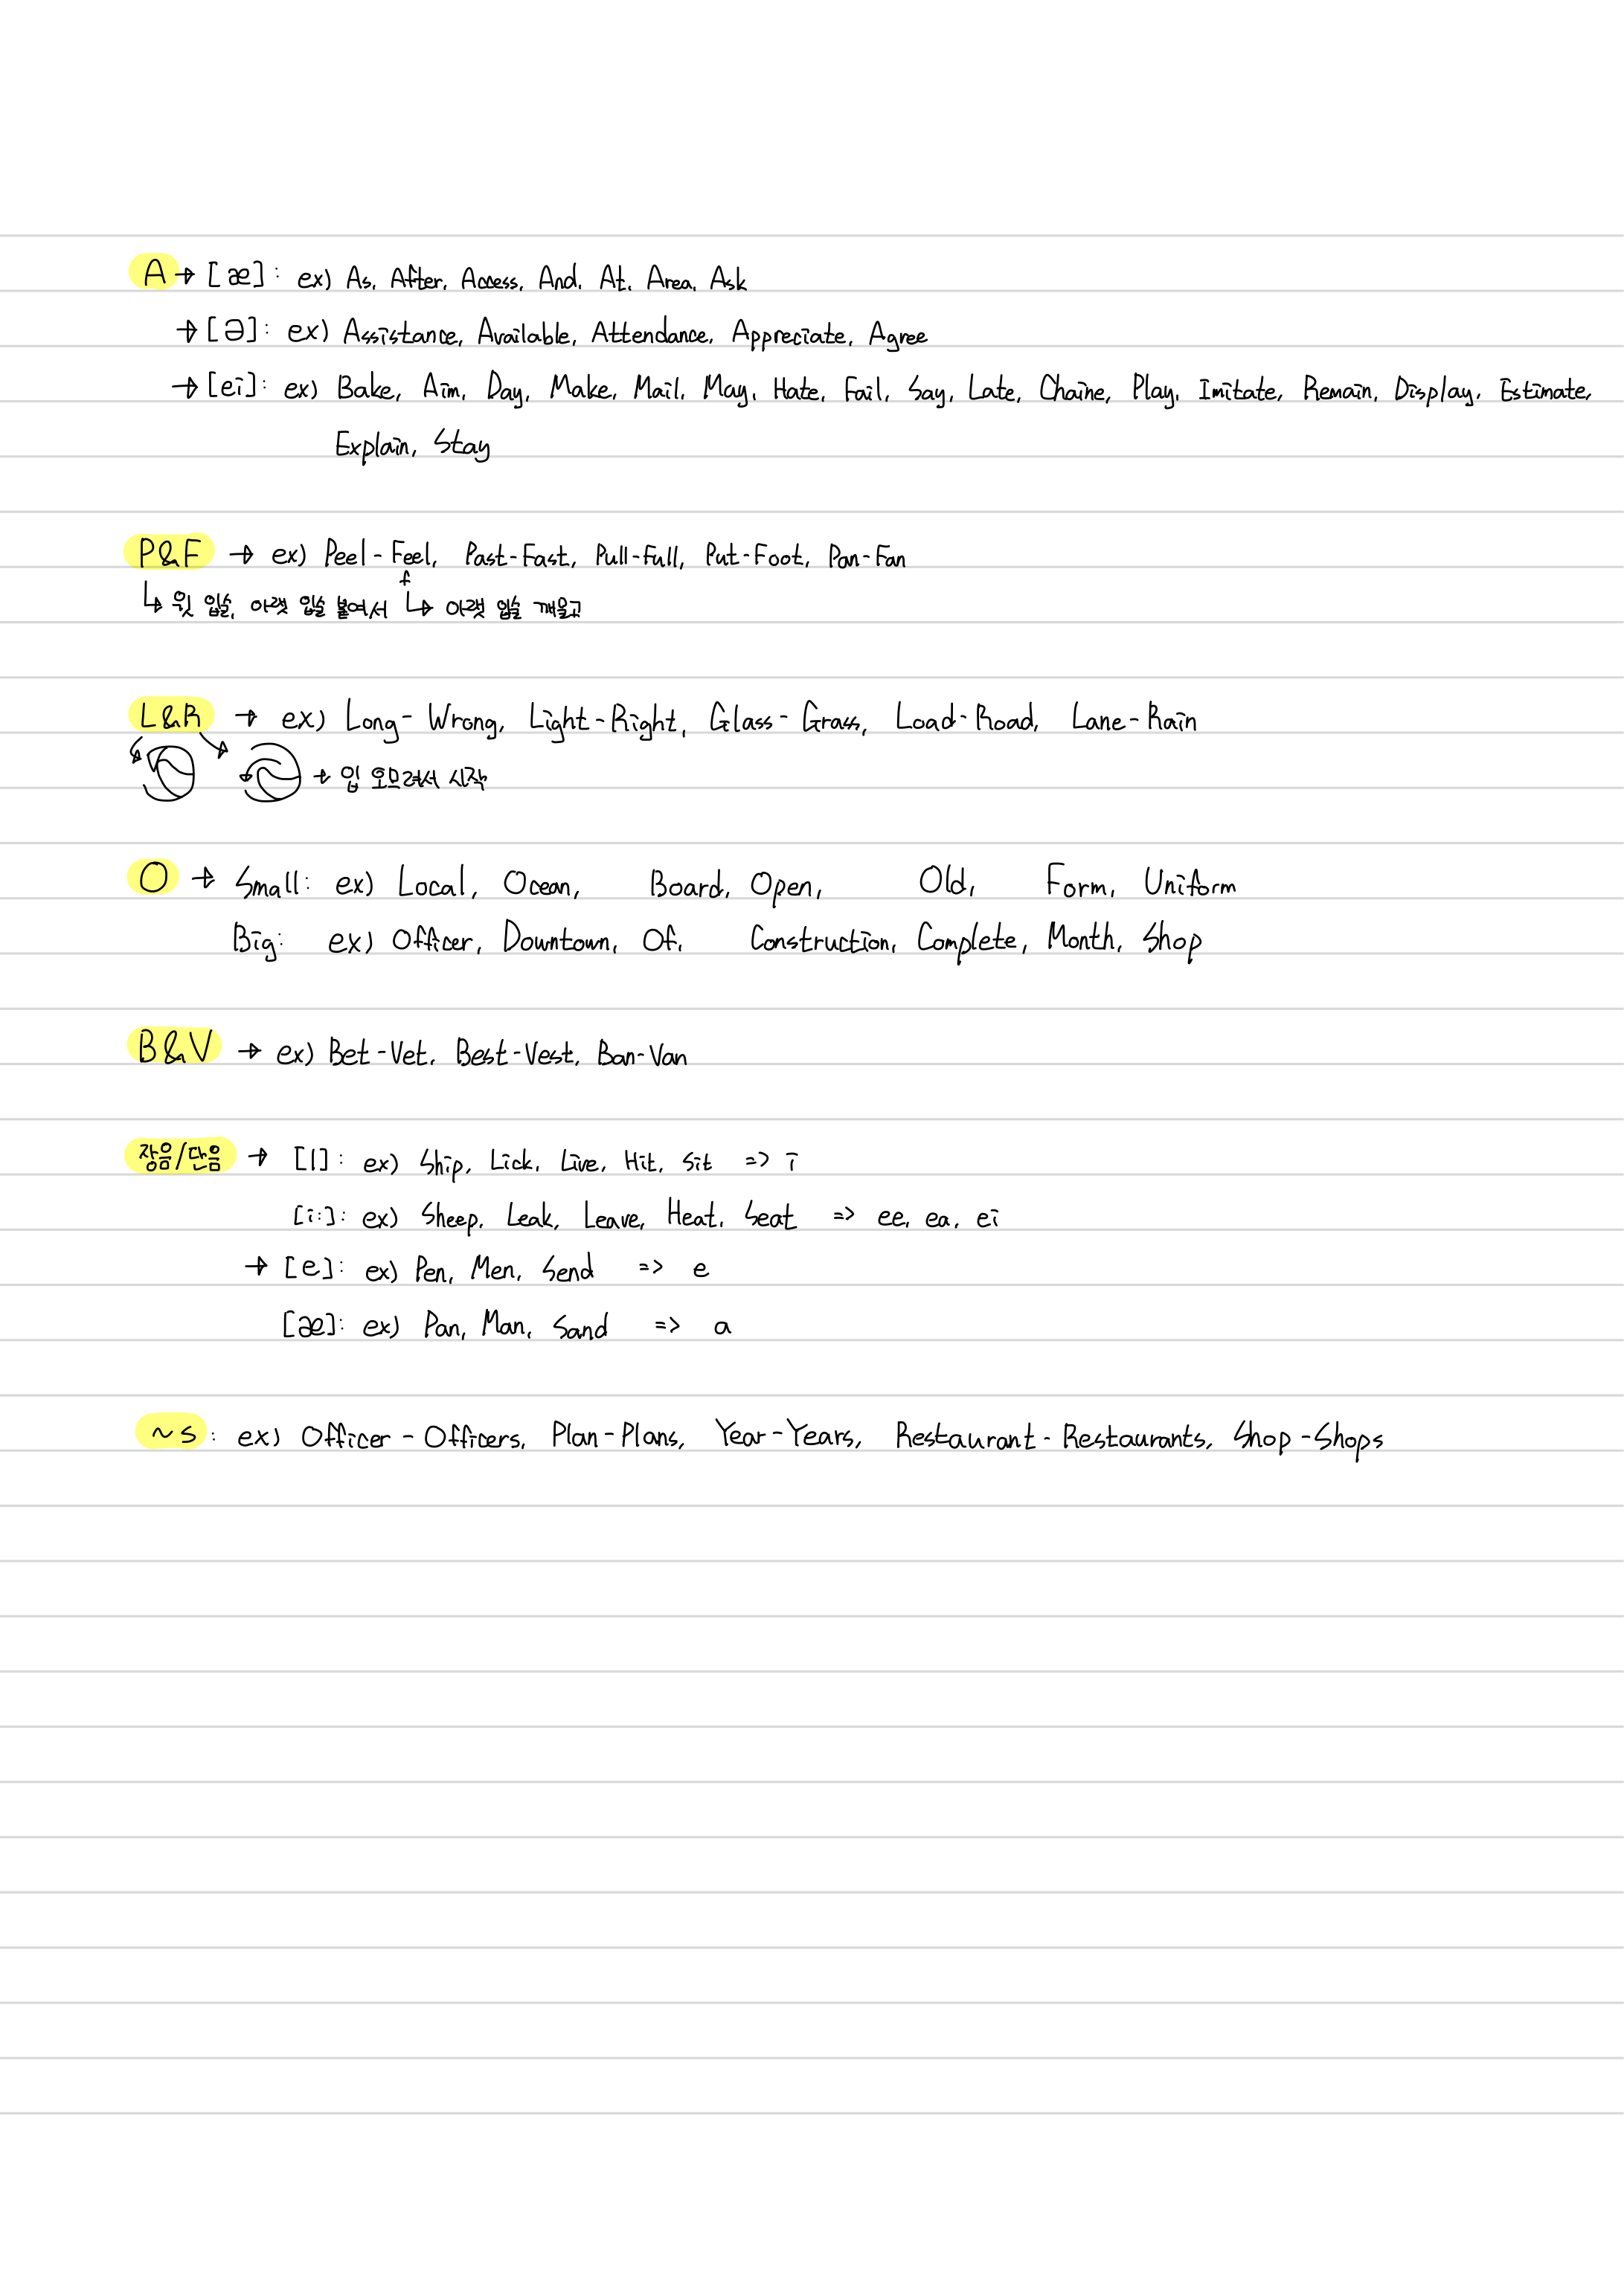 A → [æ] : ex) As, After, Access, And, At, Area, Ask
→ [ə] : ex) Assistance, Available, Attendance, Appreciate, Agree
→ [ei] : ex) Bake, Aim, Day, Make, Mail, May, Hate, Fail, Say, Late, Chaine, Play, Imitate, Remain, Display, Estimate,
Explain, Stay
P&F → ex) Peel-Feel, Past-Fast, Pull-Full, Put-Foot, Pan-Fan
f
↳ 윗 입술, 아랫 입술 붙여서 ↳ 아랫 입술 깨물고
L&R → ex) Long-Wrong, Light-Right, Glass-Grass, Load-Road, Lane-Rain
→ 입 오므려서 시작
O → Small: ex) Local, Ocean, Board, Open, Old, Form, Uniform
Big: ex) Officer, Downtown, Of, Construction, Complete, Month, Shop
B&V → ex) Bet-Vet, Best-Vest, Ban-Van
장음/단음 → [I] : ex) Ship, Lick, Live, Hit, Sit => i
[i:] : ex) Sheep, Leak, Leave, Heat, Seat => ee, ea, ei
→ [e] : ex) Pen, Men, Send => e
[æ] : ex) Pan, Man, Sand => a
~s : ex) Officer-Officers, Plan-Plans, Year-Years, Restaurant-Restaurants, Shop-Shops